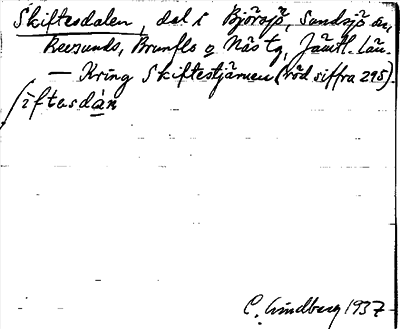 Skiftesdalen, dal i Björsjö, Sundsjö sn,
Revsunds, Brunflo o Näs tg, Jämtl. län.
— Kring Skiftestjärnen (röd siffra 295).
ʃiftesdán
C. Lindberg 1937